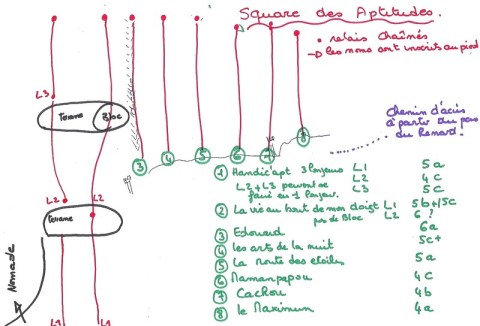 Square des Aptitudes.
• relais chaînés
→ les noms sont inscrits au pied
Chemin d'accès
à partir du pas
du Renard!
L3
Terrasse
Bloc
L2
L2
Terrasse
Nomade
L1
L1
3
4
5
6
7
8
1 Handic'apt 3 longueurs L1 5a
L2 4c
L2+L3 peuvent se L3 5c
faire en 1 longueur.
2 La vie au bout de mon doigt L1 5b+/5c
pas de Bloc L2 6?
3 Edouard 6a
4 les arts de la nuit 5c+
5 La route des etoiles 5a
6 Mamanpapou 4c
7 Cachou 4b
8 le Maximum 4a